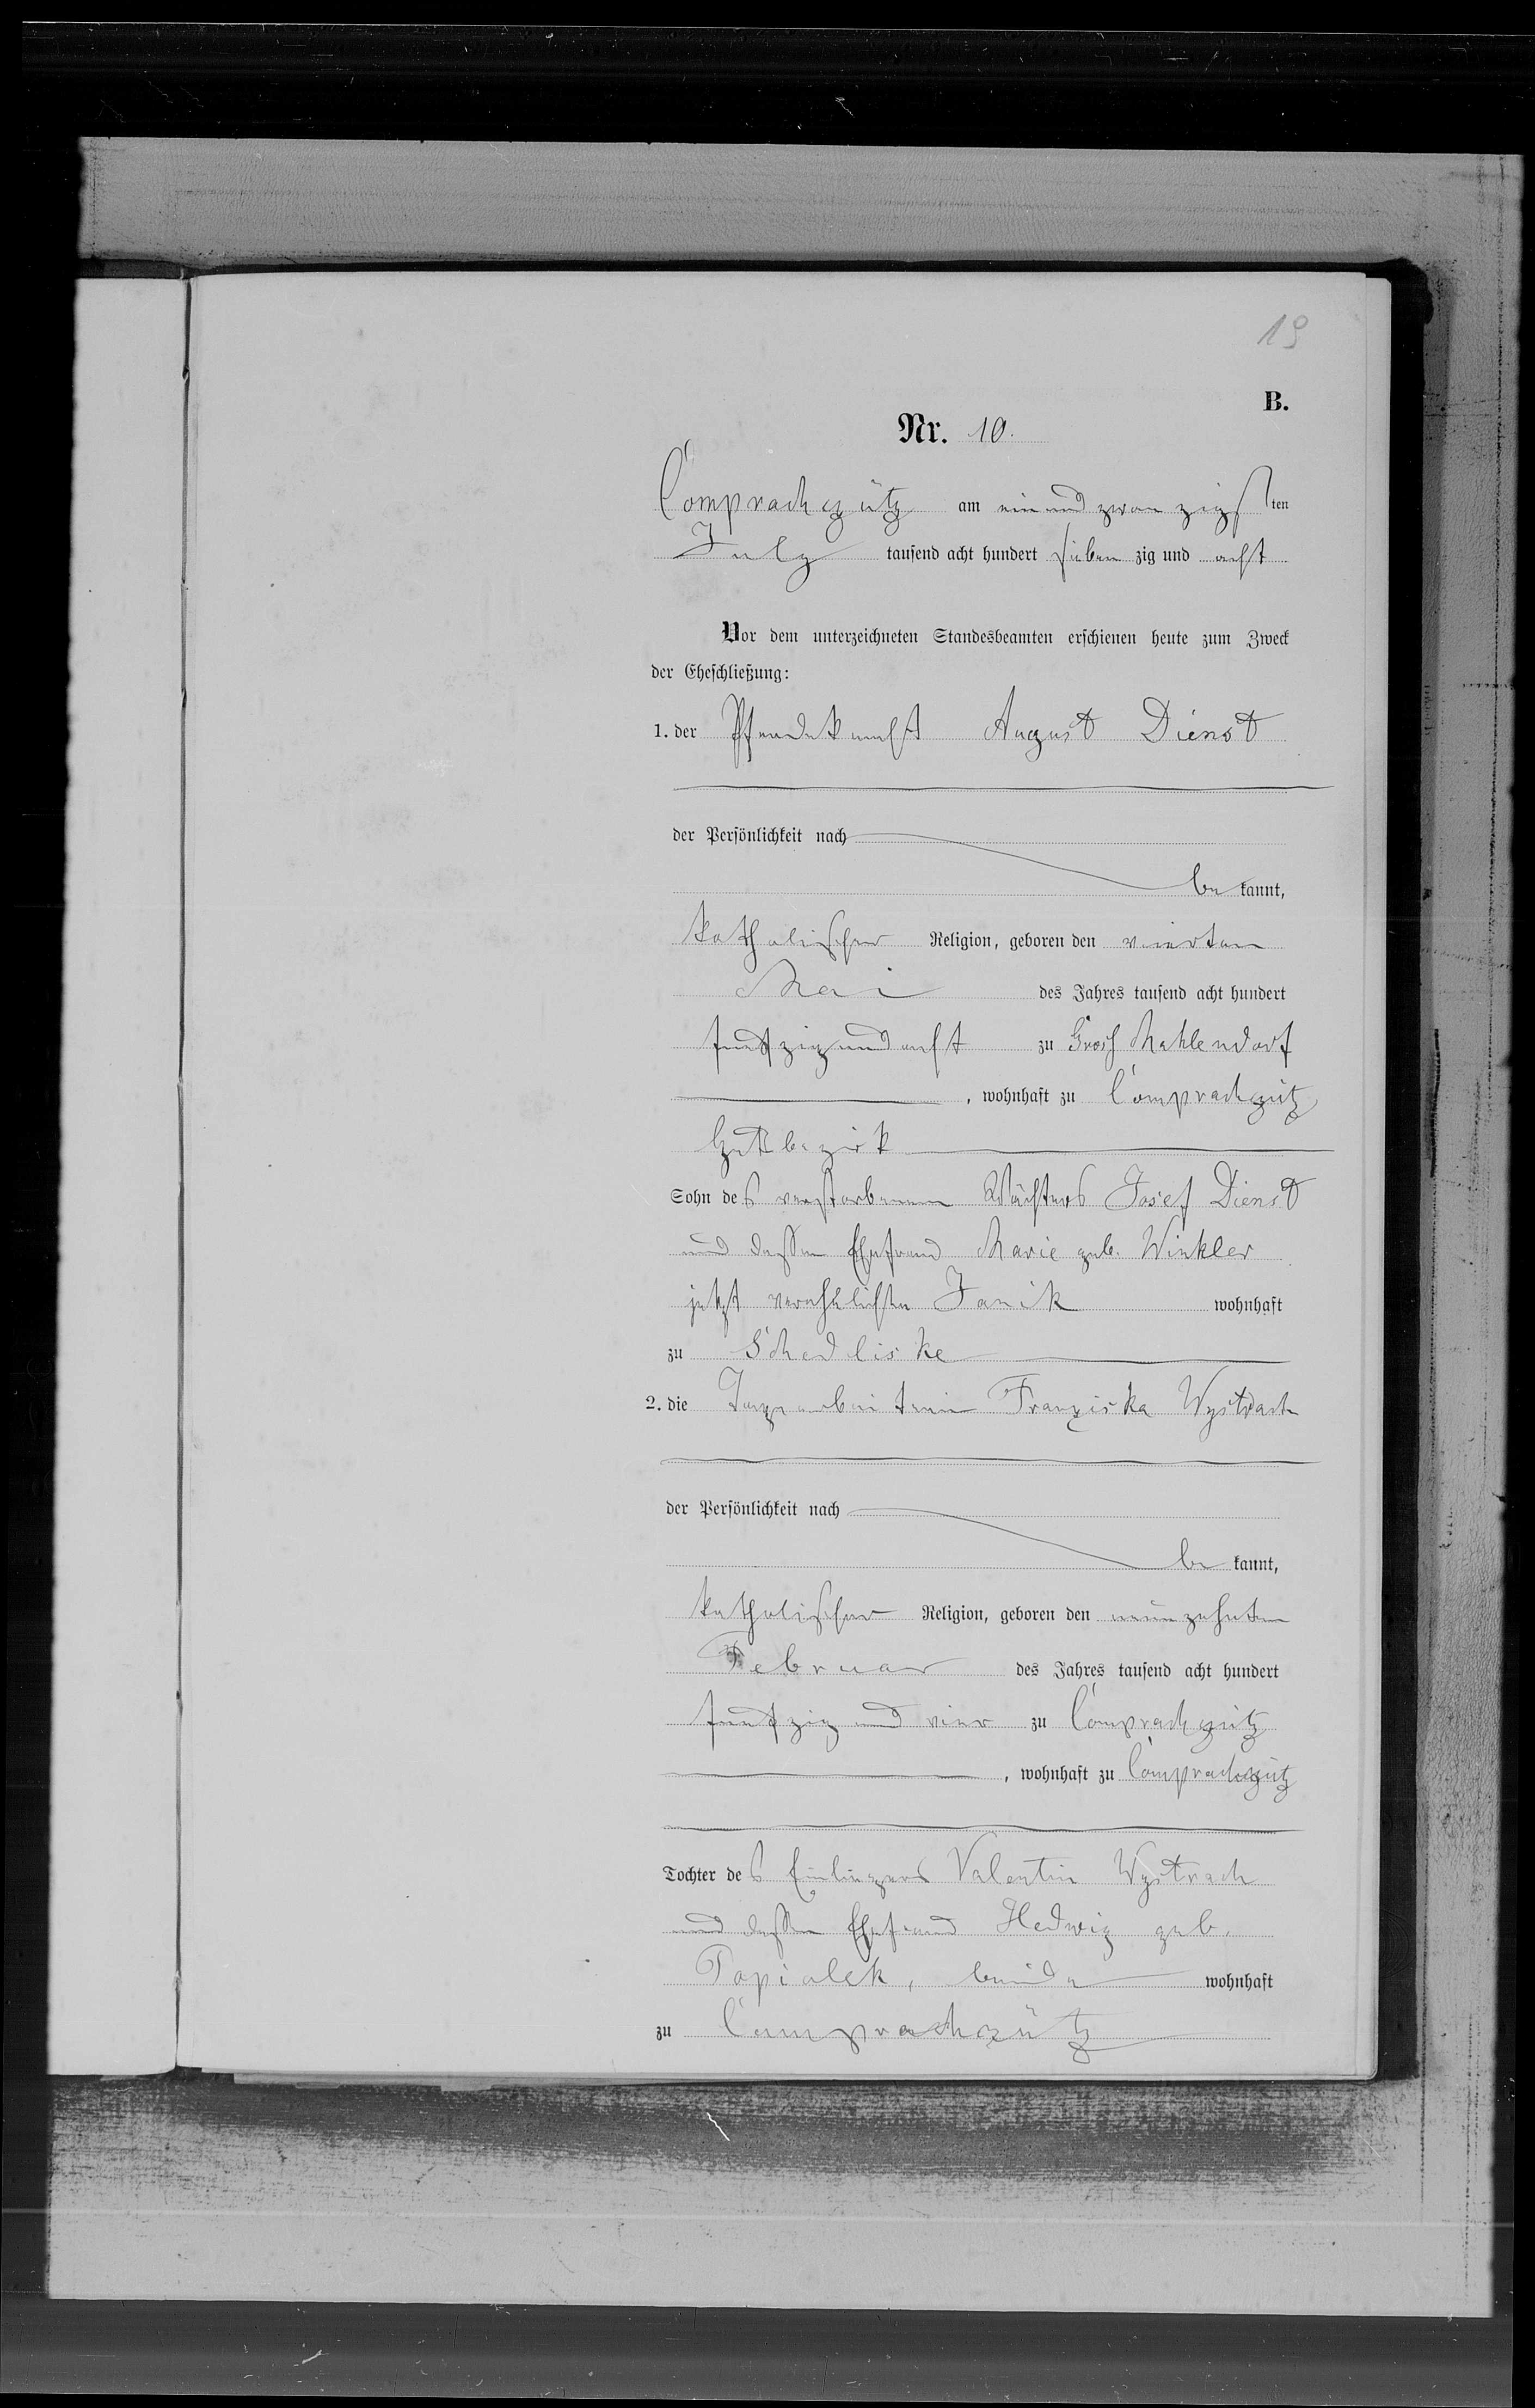 19
B.
Nr. 10.
Comprachczütz am ein und zwanzigsten
July tausend acht hundert siebenzig und acht
Vor dem unterzeichneten Standesbeamten erschienen heute zum Zweck
der Eheschließung:
1. der Pferdeknecht August Dienst
der Persönlichkeit nach
be kannt,
katholischer Religion, geboren den vierten
Mai des Jahres tausend acht hundert
fünfzig und acht zu Gross Mahlendorf
, wohnhaft zu Comprachczütz
Gutsbezirk
Sohn des verstorbenen Wächters Josef Dienst
und dessen Ehefrau Marie geb. Winkler
jetzt verehelichte Janik wohnhaft
zu Schedliske
2. die Tagearbeiterin Franziska Wystrach
der Persönlichkeit nach
be kannt,
katholischer Religion, geboren den neunzehnten
Februar des Jahres tausend acht hundert
fünfzig und vier zu Comprachczütz
, wohnhaft zu Comprachczütz
Tochter des Einliegers Valentin Wystrach
und dessen Ehefrau Hedwig geb.
Popiolek, beide wohnhaft
zu Comprachczütz